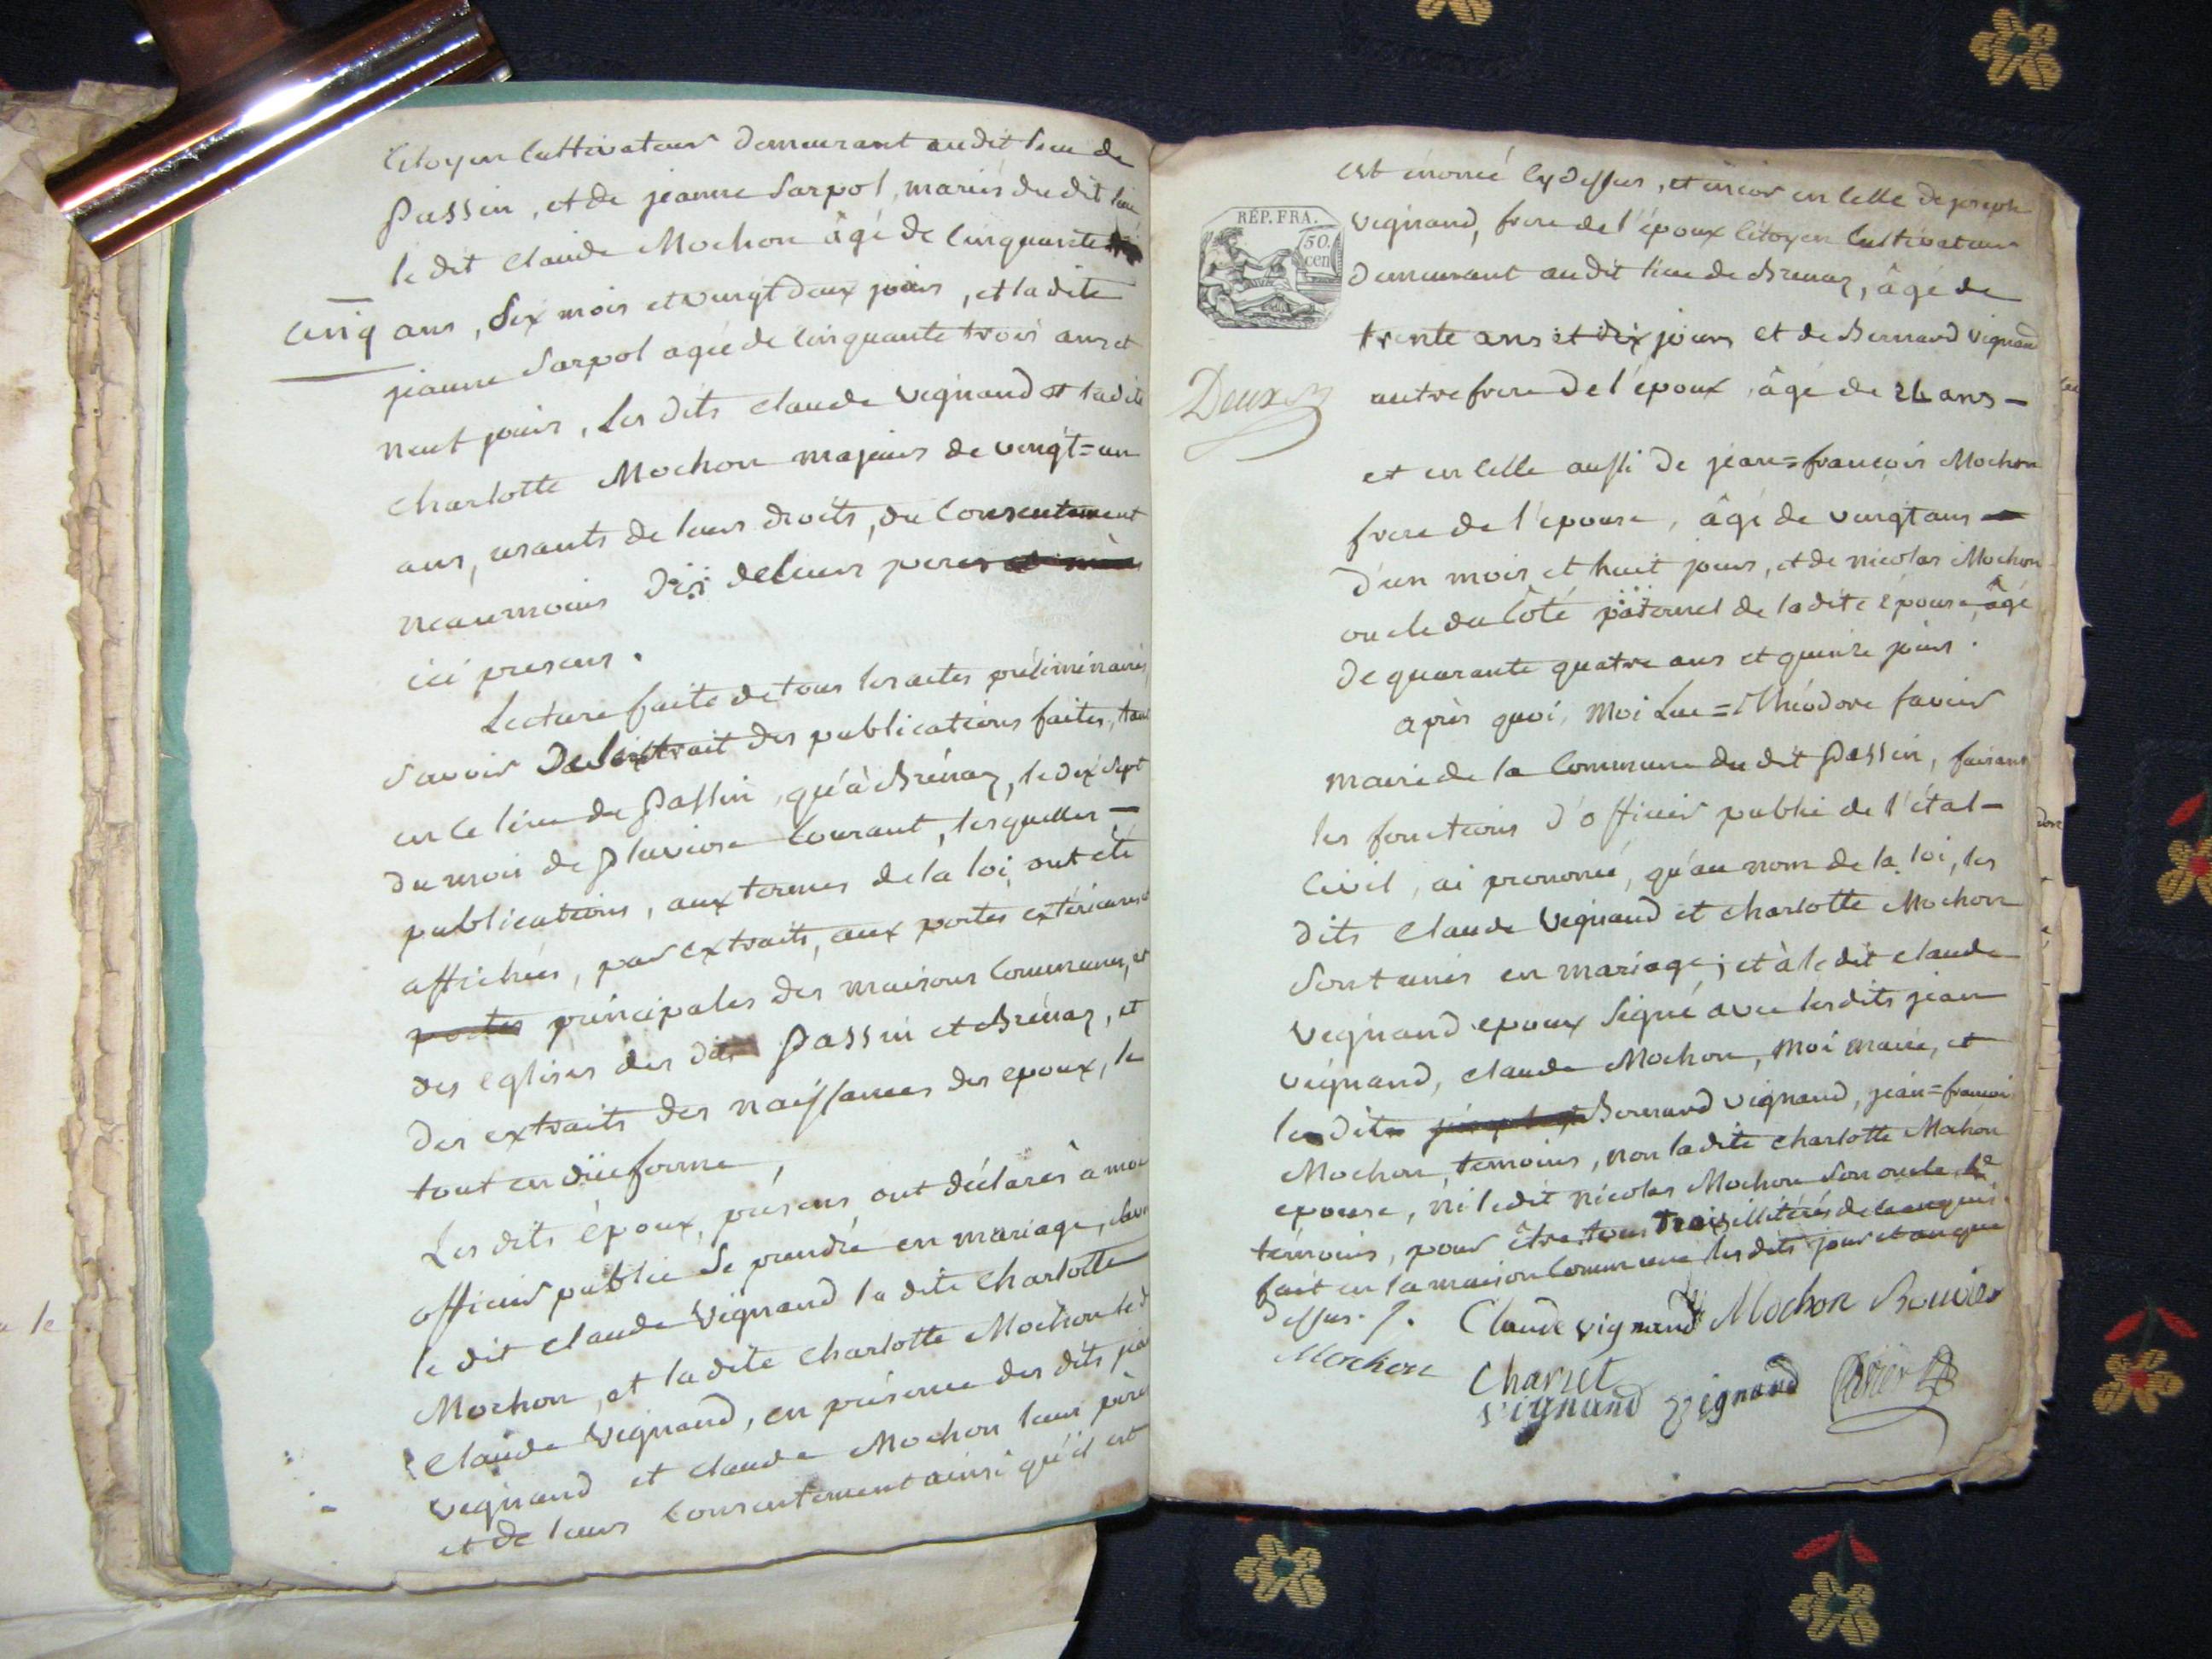 Citoyen Cultivateur demeurant au dit lieu de
Passin, et de jeanne Sarpol, mariés du dit lieu
le dit claude Mochon âgé de Cinquante
Cinq ans, Six mois et vingt deux jours, et la dite
jeanne Sarpol agée de Cinquante trois ans et
neuf jours, Les dits claude vignand et ladite
charlotte Mochon majeurs de vingt=un
ans, usants de leurs droits, du Consentement
neaumoins de leurs peres et mères
ici presens.
Lecture faite de tous les actes préliminaires,
Savoir De l'extrait des publications faites, tant
en ce lieu de Passin, qu'à Brénaz, le dix Sept
du mois de Pluviose Courant, lesquelles
publications, aux termes de la loi, ont été
affichées, par extraits, aux portes extérieures et
portes principales des maisons Communes, et
des eglises des dits Passin et Brénaz, et
des extraits des naissances des epoux, le
tout en düe forme,
Les dits époux, présens, ont déclarés à moi
officier public Se prendre en mariage,
le dit claude Vignand la dite charlotte
Mochon, et la dite charlotte Mochon le d
Claude Vignand, en présence des dits
vegnand et claude Mochon leurs pères
et de leurs Consentement ainsi qu'il est
REP. FRA.
50.
cen
Deux
est énoncé Cy dessus, et encor en Celle de joseph
vegnand, frere de l'époux Citoyen Cultivateur
demeurant au dit lieu de Brenaz, âgé de
trente ans et dix jours et de Bernard Vignand
autre frere de l'époux, âgé de 24 ans
et en Celle aussi de jean=françois Mochon
frere de l'epouse, âgé de vingt ans
d'un mois et huit jours, et de nicolas Mochon
oncle du Coté paternel de la dite épouse, âgé
de quarante quatre ans et quinze jours.
après quoi, Moi Luc=Théodore favier
maire de la Commune du dit Passin, faisant
les fonctions d'officier public de l'état
Civil, ai prononcé, qu'au nom de la loi, les
dits Claude Vegnand et charlotte Mochon
Sont unis en mariage; et à le dit claude
vegnand epoux Signé avec les dits jean
vegnand, claude Mochon, Moi maire, et
le dit Bernard vegnand, jean=francois
Mochon, temoins, non la dite charlotte Mochon
epouse, ni le dit nicolas Mochon Son oncle,
témoins, pour être tous Trois illitérés de ce enquis.
fait en la maison Commune les dits jour et an que
dessus.
Claude vignand Mochon Bouvier
Mochon
Charvet
vignand vignand favier